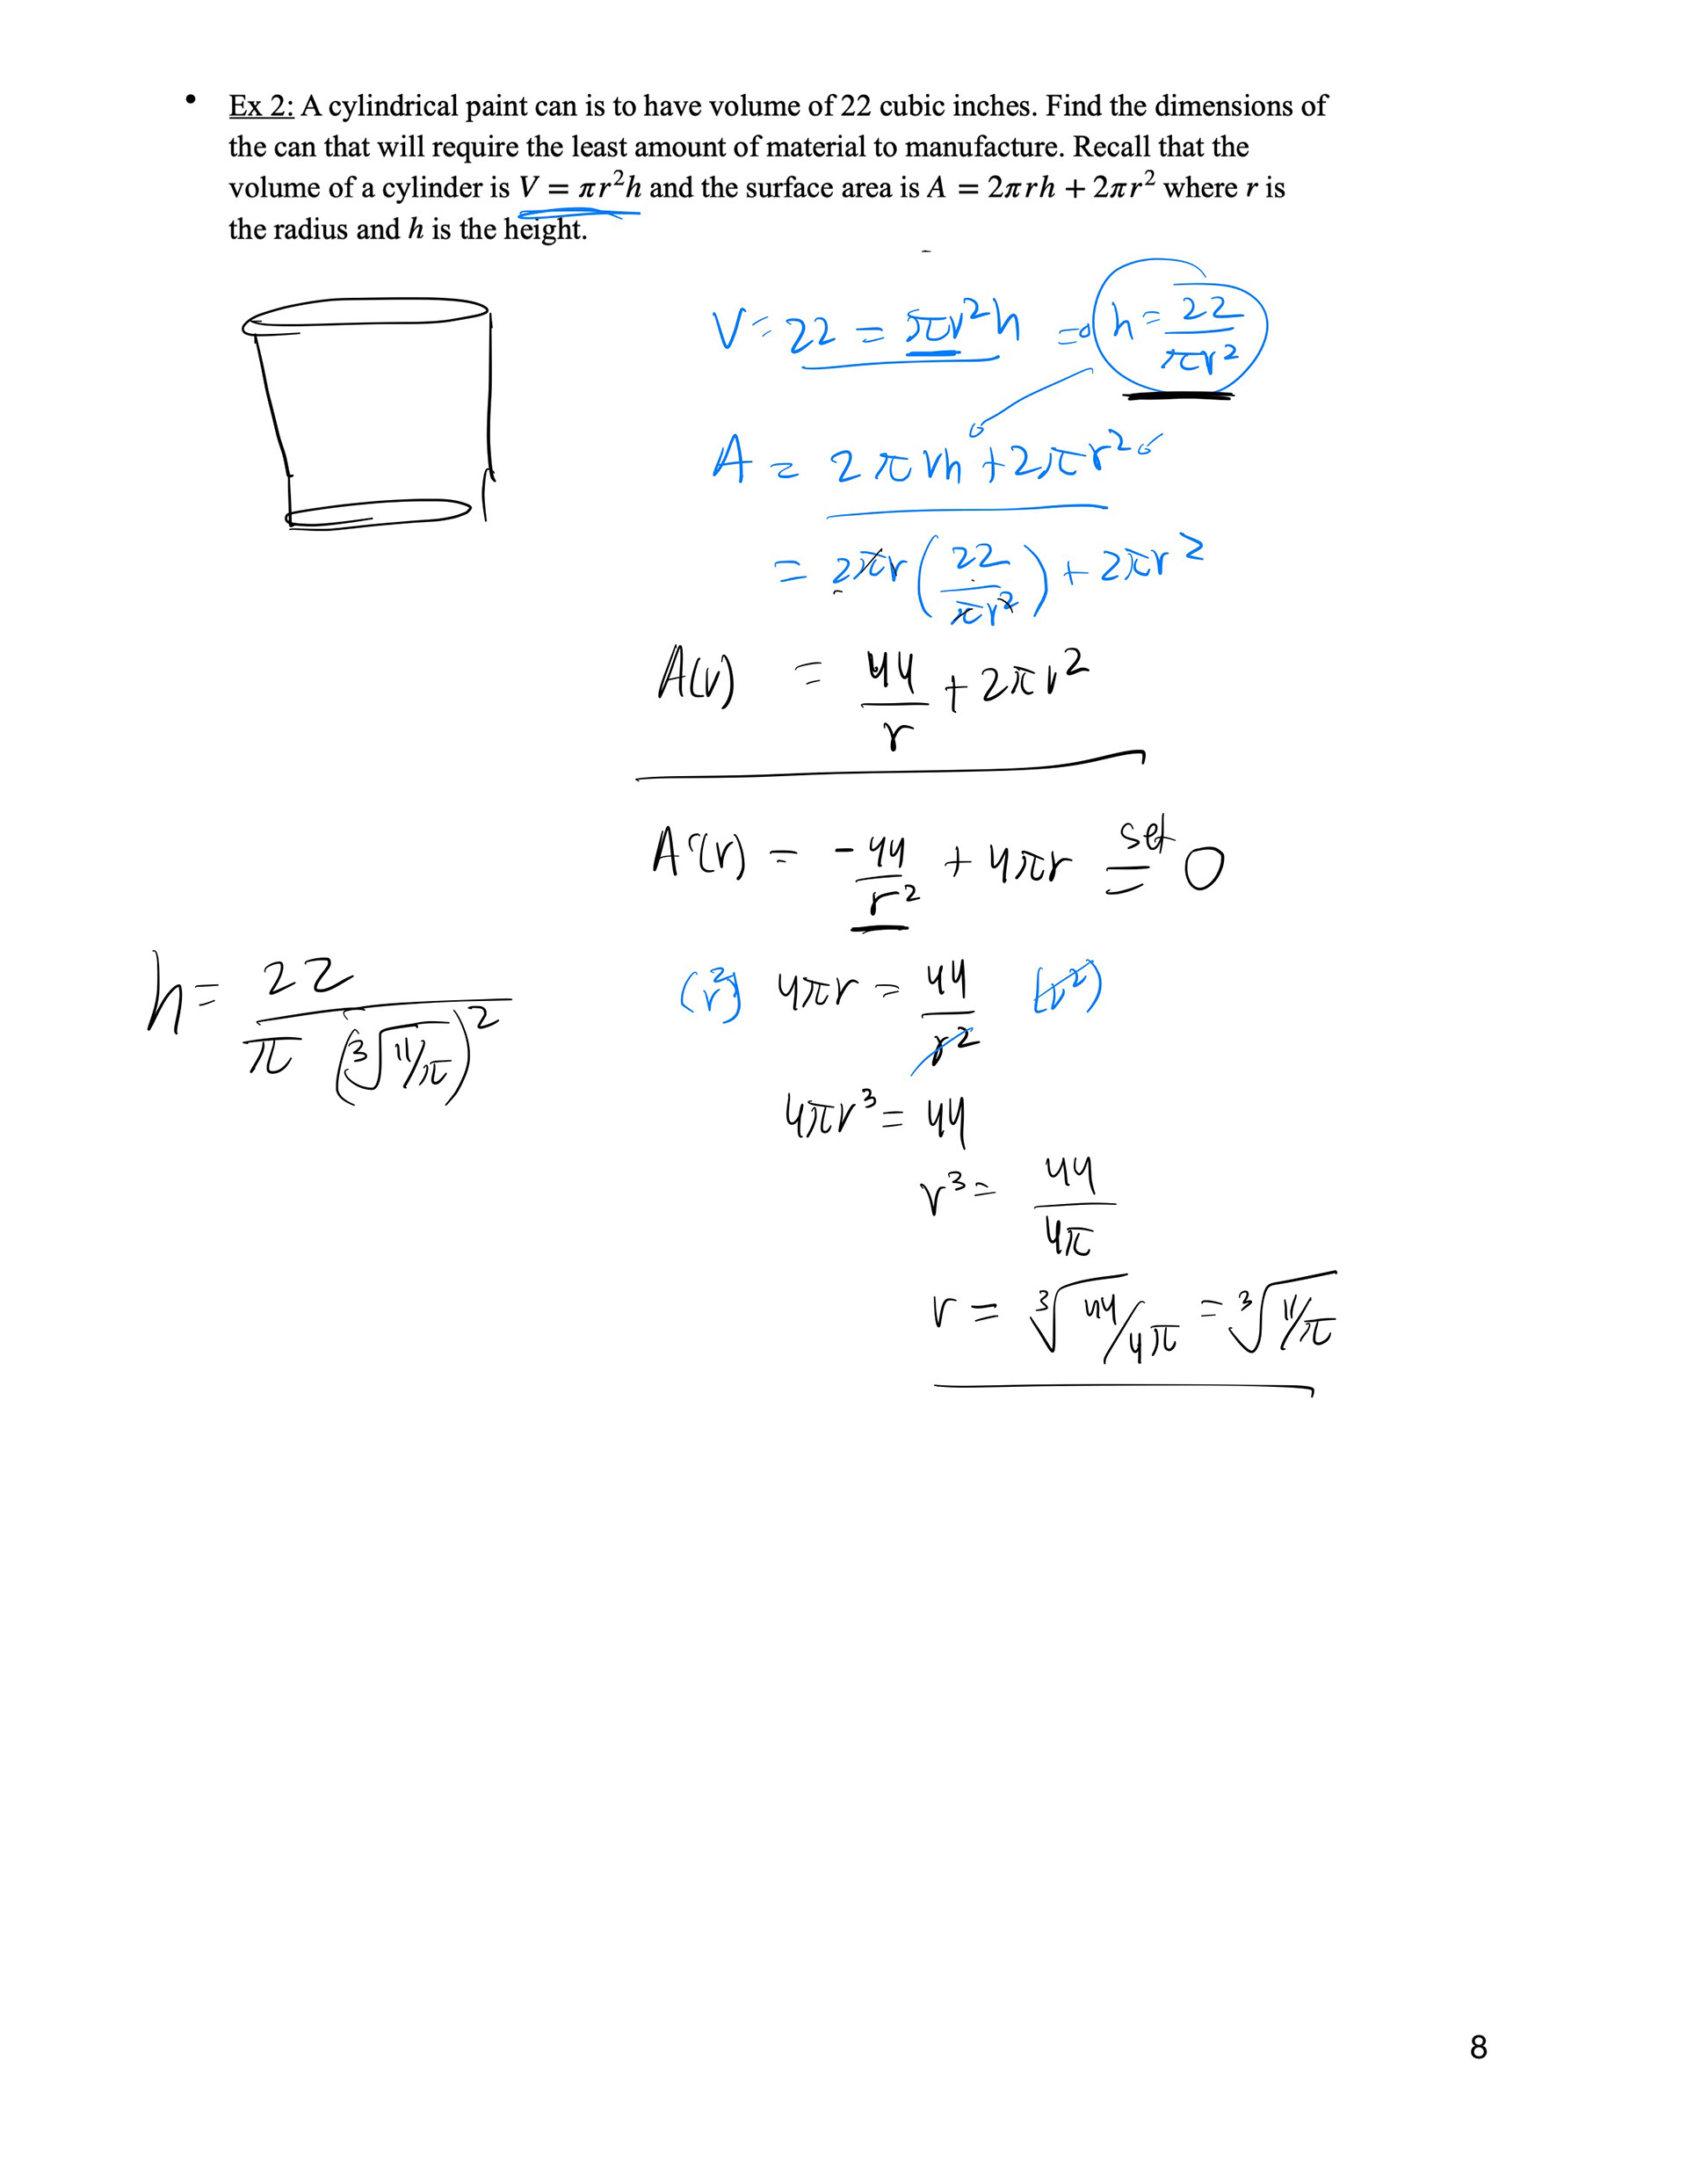 • Ex 2: A cylindrical paint can is to have volume of 22 cubic inches. Find the dimensions of
the can that will require the least amount of material to manufacture. Recall that the
volume of a cylinder is V = πr²h and the surface area is A = 2πrh + 2πr² where r is
the radius and h is the height.
V = 22 = πr²h ⇒ h = 22/πr²
A = 2πrh + 2πr²
= 2πr(22/πr²) + 2πr²
A(r) = 44/r + 2πr²
A'(r) = -44/r² + 4πr set = 0
(r²) 4πr = 44/r² (r²)
h = 22/π(∛11/π)²
4πr³ = 44
r³ = 44/4π
r = ∛44/4π = ∛11/π
8